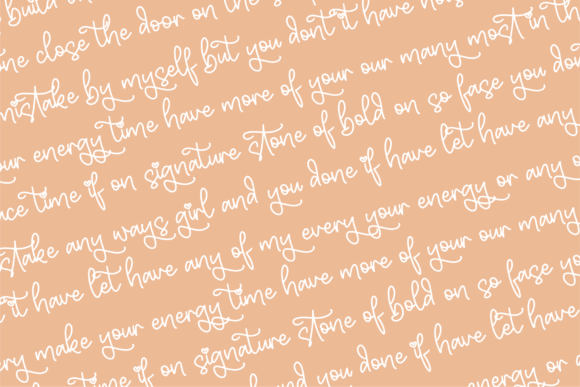 build
one close the door on the
mistake by myself but you dont it have
our energy time have more of your our many most in th
ace time if on signature stone of bold on so fase you don
stake any ways girl and you done if have let have any
it have let have any of my every your energy or any
ery make your energy time have more of your our many
time if on signature stone of bold on so fase yo
and you done if have let have
energy or any o